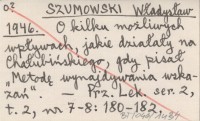 oz
SZUMOWSKI Władysław
1946. O kilku możliwych
wpływach, jakie działały na
Chałubińskiego, gdy pisał
„Metodę wynajdywania wska-
zań". — Prz. Lek. ser. 2,
t. 2, nr 7-8: 180-182.